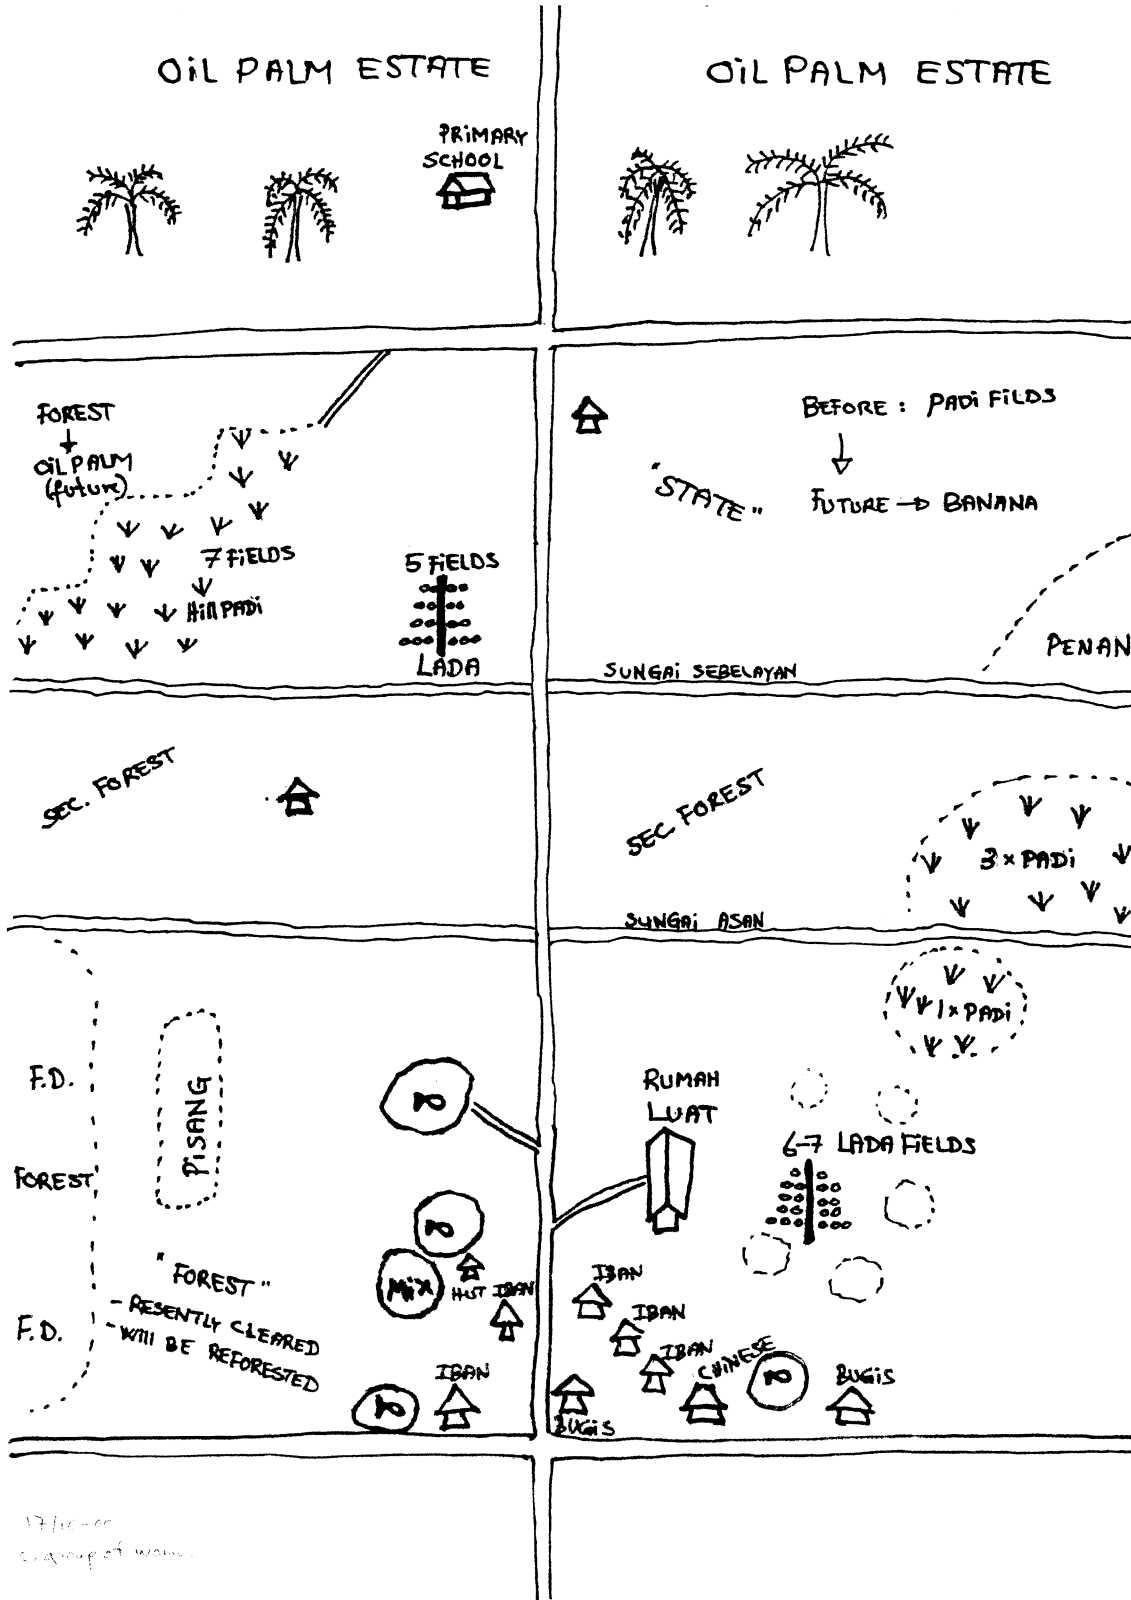 OiL PALM ESTATE
OiL PALM ESTATE
PRiMARY
SCHOOL
FOREST
OiL PALM
(future)
7 FiELDS
Hill PADi
5 FiELDS
LADA
BEFORE : PADi FiLDS
"STATE"
FUTURE → BANANA
PENAN
SUNGAi SEBELAYAN
SEC. FOREST
SEC. FOREST
3 x PADi
SUNGAi ASAN
1 x PADi
F.D.
FOREST
F.D.
PiSANG
"FOREST"
- RESENTLY CLEARED
- Will BE REFORESTED
RUMAH
LUAT
6-7 LADA FiELDS
MiX
HUT
IBAN
IBAN
IBAN
IBAN
IBAN
CHiNESE
BUGiS
BUGiS
group of